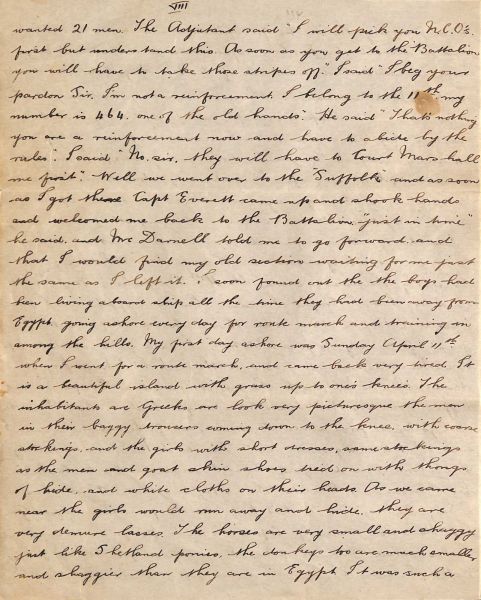 VIII
wanted 21 men. The Adjutant said "I will pick you N.C.O's.
first but understand this. As soon as you get to the Battalion
you will have to take those stripes off". I said "I beg your
pardon Sir, I'm not a reinforcement, I belong to the 11th, my
number is 464, one of the old hands". He said "That's nothing
you are a reinforcement now and have to abide by the
rules". I said "No, sir, they will have to Court Marshall
me first". Well we went over to the "Suffolk" and as soon
as I got there Capt Everett came up and shook hands
and welcomed me back to the Battalion, "just in time"
he said, and Mr Darnell told me to go forward, and
that I would find my old section waiting for me just
the same as I left it. I soon found out the the boys had
been living aboard ship all the time they had been away from
Egypt, going ashore every day for route march and training in
among the hills. My first day ashore was Sunday April 11th
when I went for a route march, and came back very tired. It
is a beautiful island with grass up to one's knees. The
inhabitants are Greeks are look very picturesque the men
in their baggy trousers coming down to the knee, with coarse
stockings, and the girls with short dresses, same stockings
as the men and goat skin shoes tied on with thongs
of hide, and white cloths on their heads. As we came
near the girls would run away and hide, they are
very demure lasses. The horses are very small and shaggy
just like Shetland ponies, the donkeys too are much smaller
and shaggier than they are in Egypt It was such a